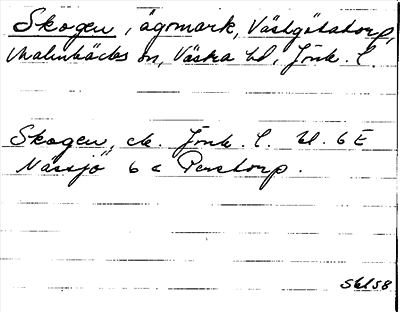 Skogen, ägomark, Västgötatorp,
Malmbäcks sn, Västra hd, Jönk. l.
Skogen, ek. Jönk. l. bl. 6 E
Nässjö 6 c Perstorp.
Skl 58